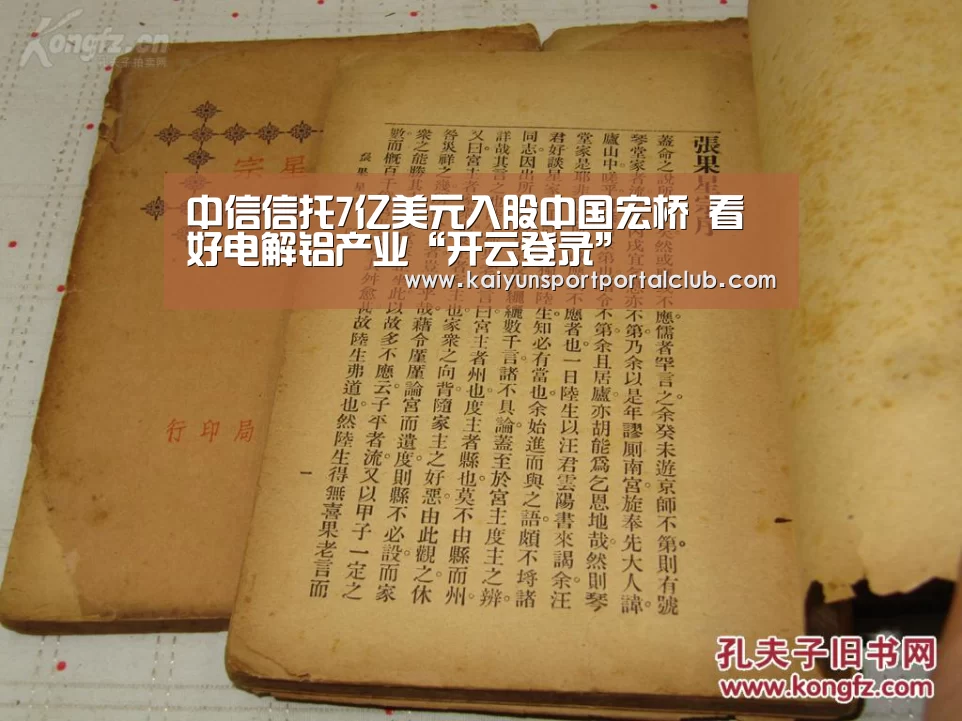 Kongfz.cn
中信信托7亿美元入股中国宏桥 看
好电解铝产业“开云登录”
www.kaiyunsportportalclub.com
張果星宗序
蓋命之說所然或不應儒者罕言之余癸未遊京師不第則有號
琴堂家者戌宜亦不第乃余以是年謬厠南宮旋奉先大人諱
廬山中嗟乎第山令不第余且居廬亦胡能為乞恩地哉然則琴
堂家是耶非不應者也一日陸生以汪君雲陽書來謁余汪
君好談星家陸生知必有當也余始進而與之語頗不埒諸
同志因出所纚纚數千言諸不具論蓋至於宮主度主之辨
詳哉其言之言曰宮主者州也度主者縣也莫不由縣而州
又曰宮主者主也家衆之向背隨家主之好惡由此觀之休
咎災祥之乎哉藉令廑廑論宮而遺度則縣不必設而家
衆之能勝其生此以故多不應云子平者流又以甲子一定之
數而概百千舛愈甚故陸生弗道也然陸生得無喜果老言而
一
星宗
局印行
孔夫子旧书网
www.kongfz.com